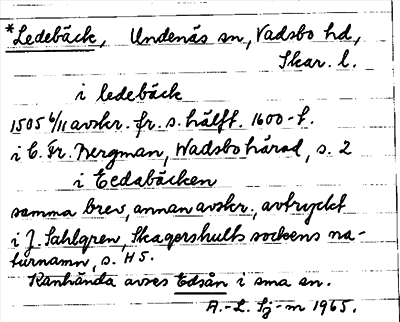 *Ledebäck, Undenäs sn, Vadsbo hd,
Skar. l.
i ledebäck
1505 6/11 avskr. fr. s. hälft. 1600-t.
i C. Fr. Bergman, Wadsbo härad, s. 2
i Eedabäcken
samma brev, annan avskr., avtryckt
i J. Sahlgren, Skagershults sockens na-
turnamn, s. 45.
Kanhända avses Edsån i sma sn.
A.-L. Sj-m 1965.